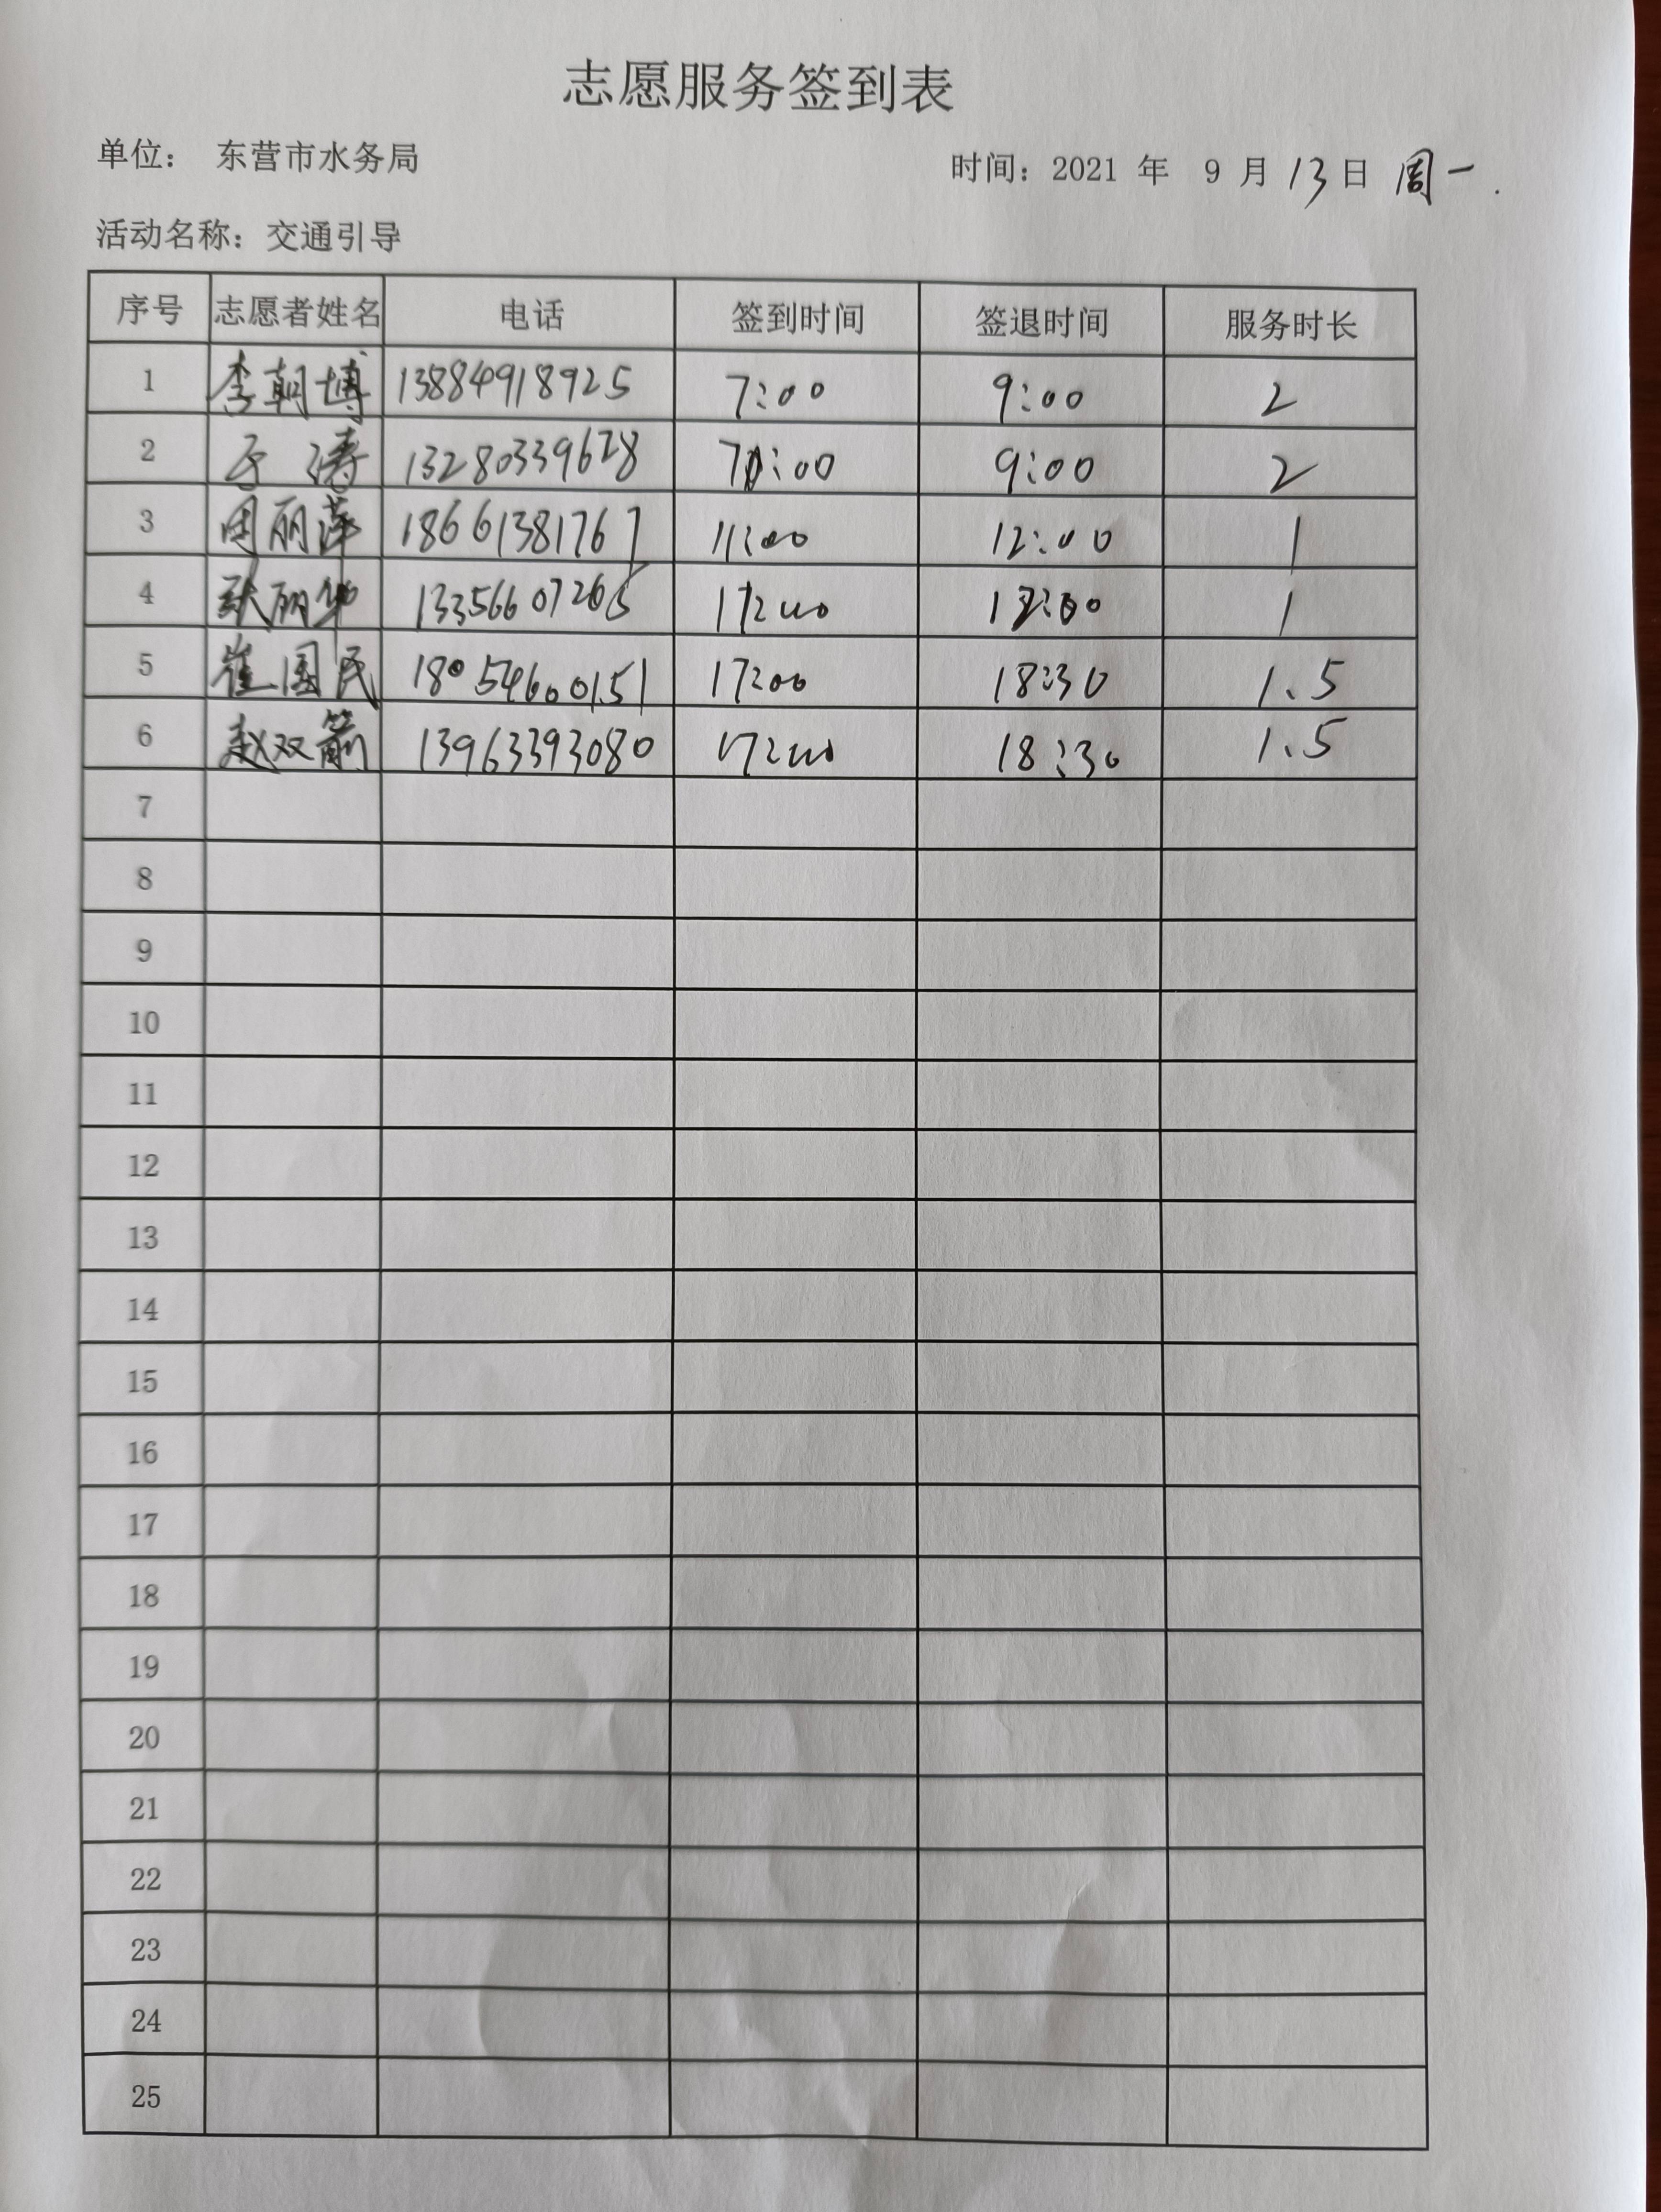 志愿服务签到表
单位： 东营市水务局 时间：2021 年 9 月 13 日 周一
活动名称：交通引导
序号 志愿者姓名 电话 签到时间 签退时间 服务时长
1 李朝博 13884918925 7:00 9:00 2
2 于涛 13280339628 7:00 9:00 2
3 周丽萍 18661381767 11:00 12:00 1
4 耿丽华 13356607265 11:00 12:00 1
5 崔国民 18054600151 17:00 18:30 1.5
6 赵双箭 13963393080 17:00 18:30 1.5
7
8
9
10
11
12
13
14
15
16
17
18
19
20
21
22
23
24
25